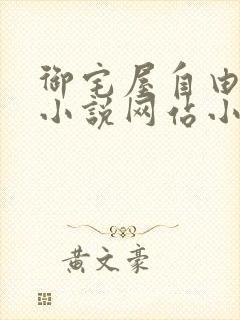 御宅屋自由
小说网佔小
黄文豪